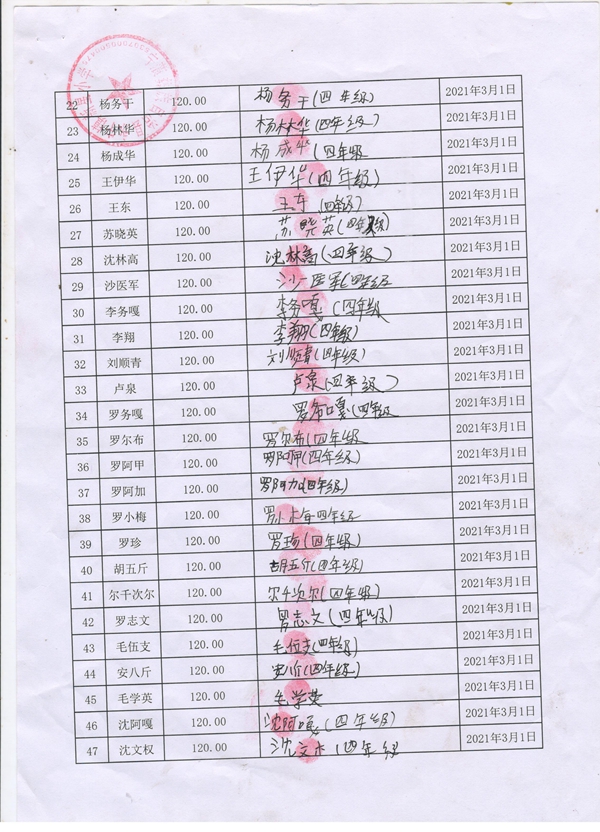 22 杨务干 120.00 杨务干(四年级) 2021年3月1日
23 杨林华 120.00 杨林华(四年级) 2021年3月1日
24 杨成华 120.00 杨成华(四年级 2021年3月1日
25 王伊华 120.00 王伊华(四年级) 2021年3月1日
26 王东 120.00 王东(四年级) 2021年3月1日
27 苏晓英 120.00 苏晓英(四年级) 2021年3月1日
28 沈林高 120.00 沈林高(四年级) 2021年3月1日
29 沙医军 120.00 沙医军(四年级 2021年3月1日
30 李务嘎 120.00 李务嘎(四年级 2021年3月1日
31 李翔 120.00 李翔(四年级) 2021年3月1日
32 刘顺青 120.00 刘顺青(四年级) 2021年3月1日
33 卢泉 120.00 卢泉(四年级) 2021年3月1日
34 罗务嘎 120.00 罗务嘎(四年级 2021年3月1日
35 罗尔布 120.00 罗尔布(四年级 2021年3月1日
36 罗阿甲 120.00 罗阿甲(四年级) 2021年3月1日
37 罗阿加 120.00 罗阿加(四年级) 2021年3月1日
38 罗小梅 120.00 罗小梅四年级 2021年3月1日
39 罗珍 120.00 罗珍(四年级) 2021年3月1日
40 胡五斤 120.00 胡五斤(四年级) 2021年3月1日
41 尔千次尔 120.00 尔千次尔(四年级) 2021年3月1日
42 罗志文 120.00 罗志文(四年级) 2021年3月1日
43 毛伍支 120.00 毛伍支(四年级) 2021年3月1日
44 安八斤 120.00 (四年级) 2021年3月1日
45 毛学英 120.00 毛学英 2021年3月1日
46 沈阿嘎 120.00 沈阿嘎(四年级) 2021年3月1日
47 沈文权 120.00 沈文权(四年级 2021年3月1日